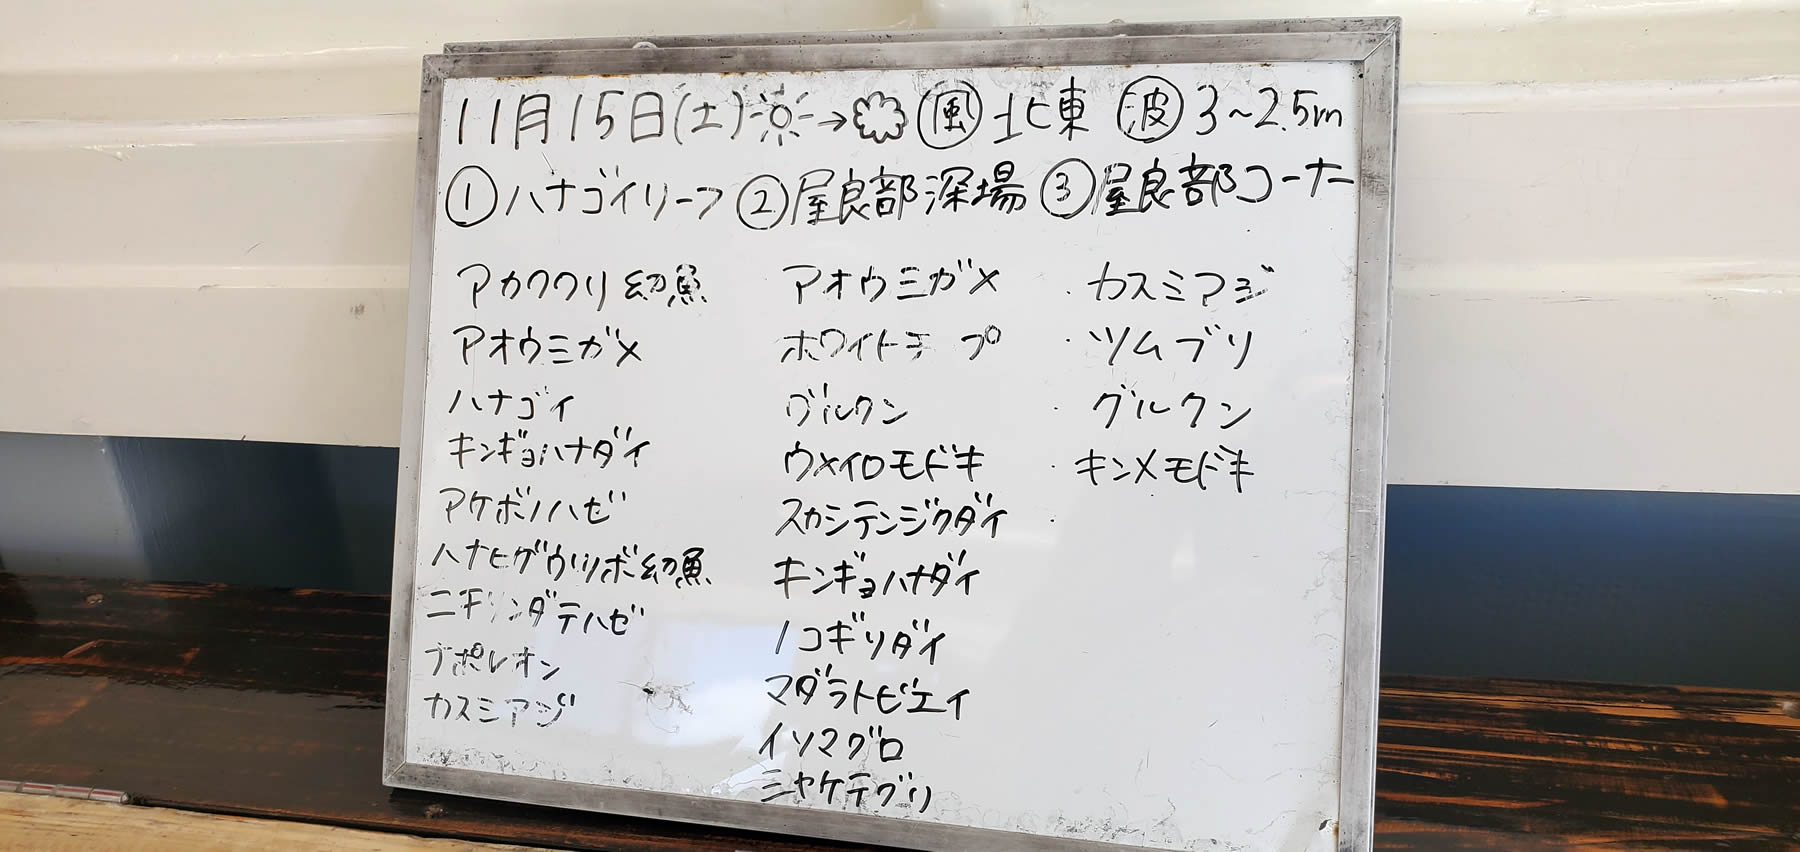 11月15日(土)☀→☁ 風 北東 波 3~2.5m
①ハナゴイリーフ ②屋良部深場 ③屋良部コーナー
アカククリ幼魚
アオウミガメ
ハナゴイ
キンギョハナダイ
アケボノハゼ
ハナヒゲウツボ幼魚
ニチリンダテハゼ
ナポレオン
カスミアジ
アオウミガメ
ホワイトチップ
グルクン
ウメイロモドキ
スカシテンジクダイ
キンギョハナダイ
ノコギリダイ
マダラトビエイ
イソマグロ
ミヤケテグリ
・カスミアジ
・ツムブリ
・グルクン
・キンメモドキ
・